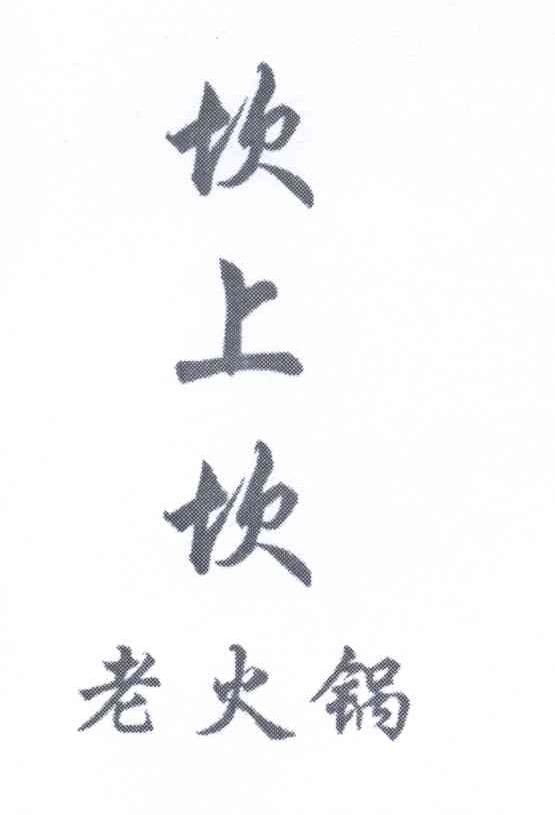 坎
上
坎
老火锅